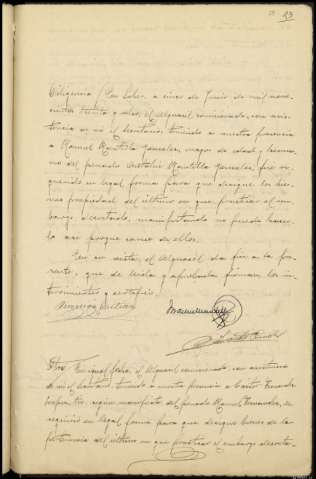 23
Diligencia / En Leba, a cinco de Junio de mil nove-
cientos treinta y ocho, el Alguacil comisionado, con asis-
tencia de mi el Secretario, teniendo a nuestra presencia
a Manuel Mantilla Gonzalez, mayor de edad y herma-
no del penado Mantilla Gonzalez, fue re-
querido en legal forma para que designe los bie-
nes propiedad del último en que practicar el em-
bargo decretado, manifestando no puede hacer-
lo así porque carece de ellos.
En su vista, el Alguacil da fin a la pre-
sente, que de leida y aprobada firman los in-
tervinientes y certifico.
Otra. En igual fecha, el Alguacil comisionado, con asistencia
de mi el Secretario, teniendo a nuestra presencia a
según manifiesta del penado Manuel Fernandez, es
requirio en legal forma para que designe bienes de la
pertenencia del último en que practicar el embargo decreta-